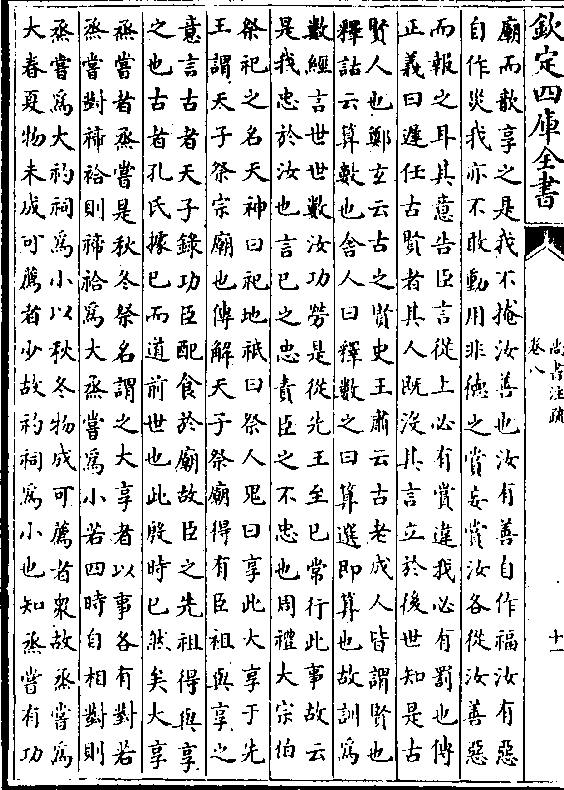 欽定四庫全書
尚書注疏
卷八
十一
廟而歆享之是我不掩汝善也汝有善自作福汝有惡
自作災我亦不敢動用非德之賞妄賞汝各從汝善惡
而報之耳其意告臣言從上必有賞違我必有罰也傳
正義曰遲任古賢者其人既沒其言立於後世知是古
賢人也鄭玄云古之賢史王肅云古老成人皆謂賢也
釋詁云算數也舍人曰釋數之曰算選即算也故訓為
數經言世世數汝功勞是從先王至已常行此事故云
是我忠於汝也言已之忠責臣之不忠也周禮大宗伯
祭祀之名天神曰祀地祇曰祭人鬼曰享此大享于先
王謂天子祭宗廟也傳解天子祭廟得有臣祖與享之
意言古者天子錄功臣配食於廟故臣之先祖得與享
之也古者孔氏據已而道前世也此殷時已然矣大享
烝嘗者烝嘗是秋冬祭名謂之大享者以事各有對若
烝嘗對禘祫則禘祫為大烝嘗為小若四時自相對則
烝嘗為大礿祠為小以秋冬物成可薦者衆故烝嘗為
大春夏物未成可薦者少故礿祠為小也知烝嘗有功